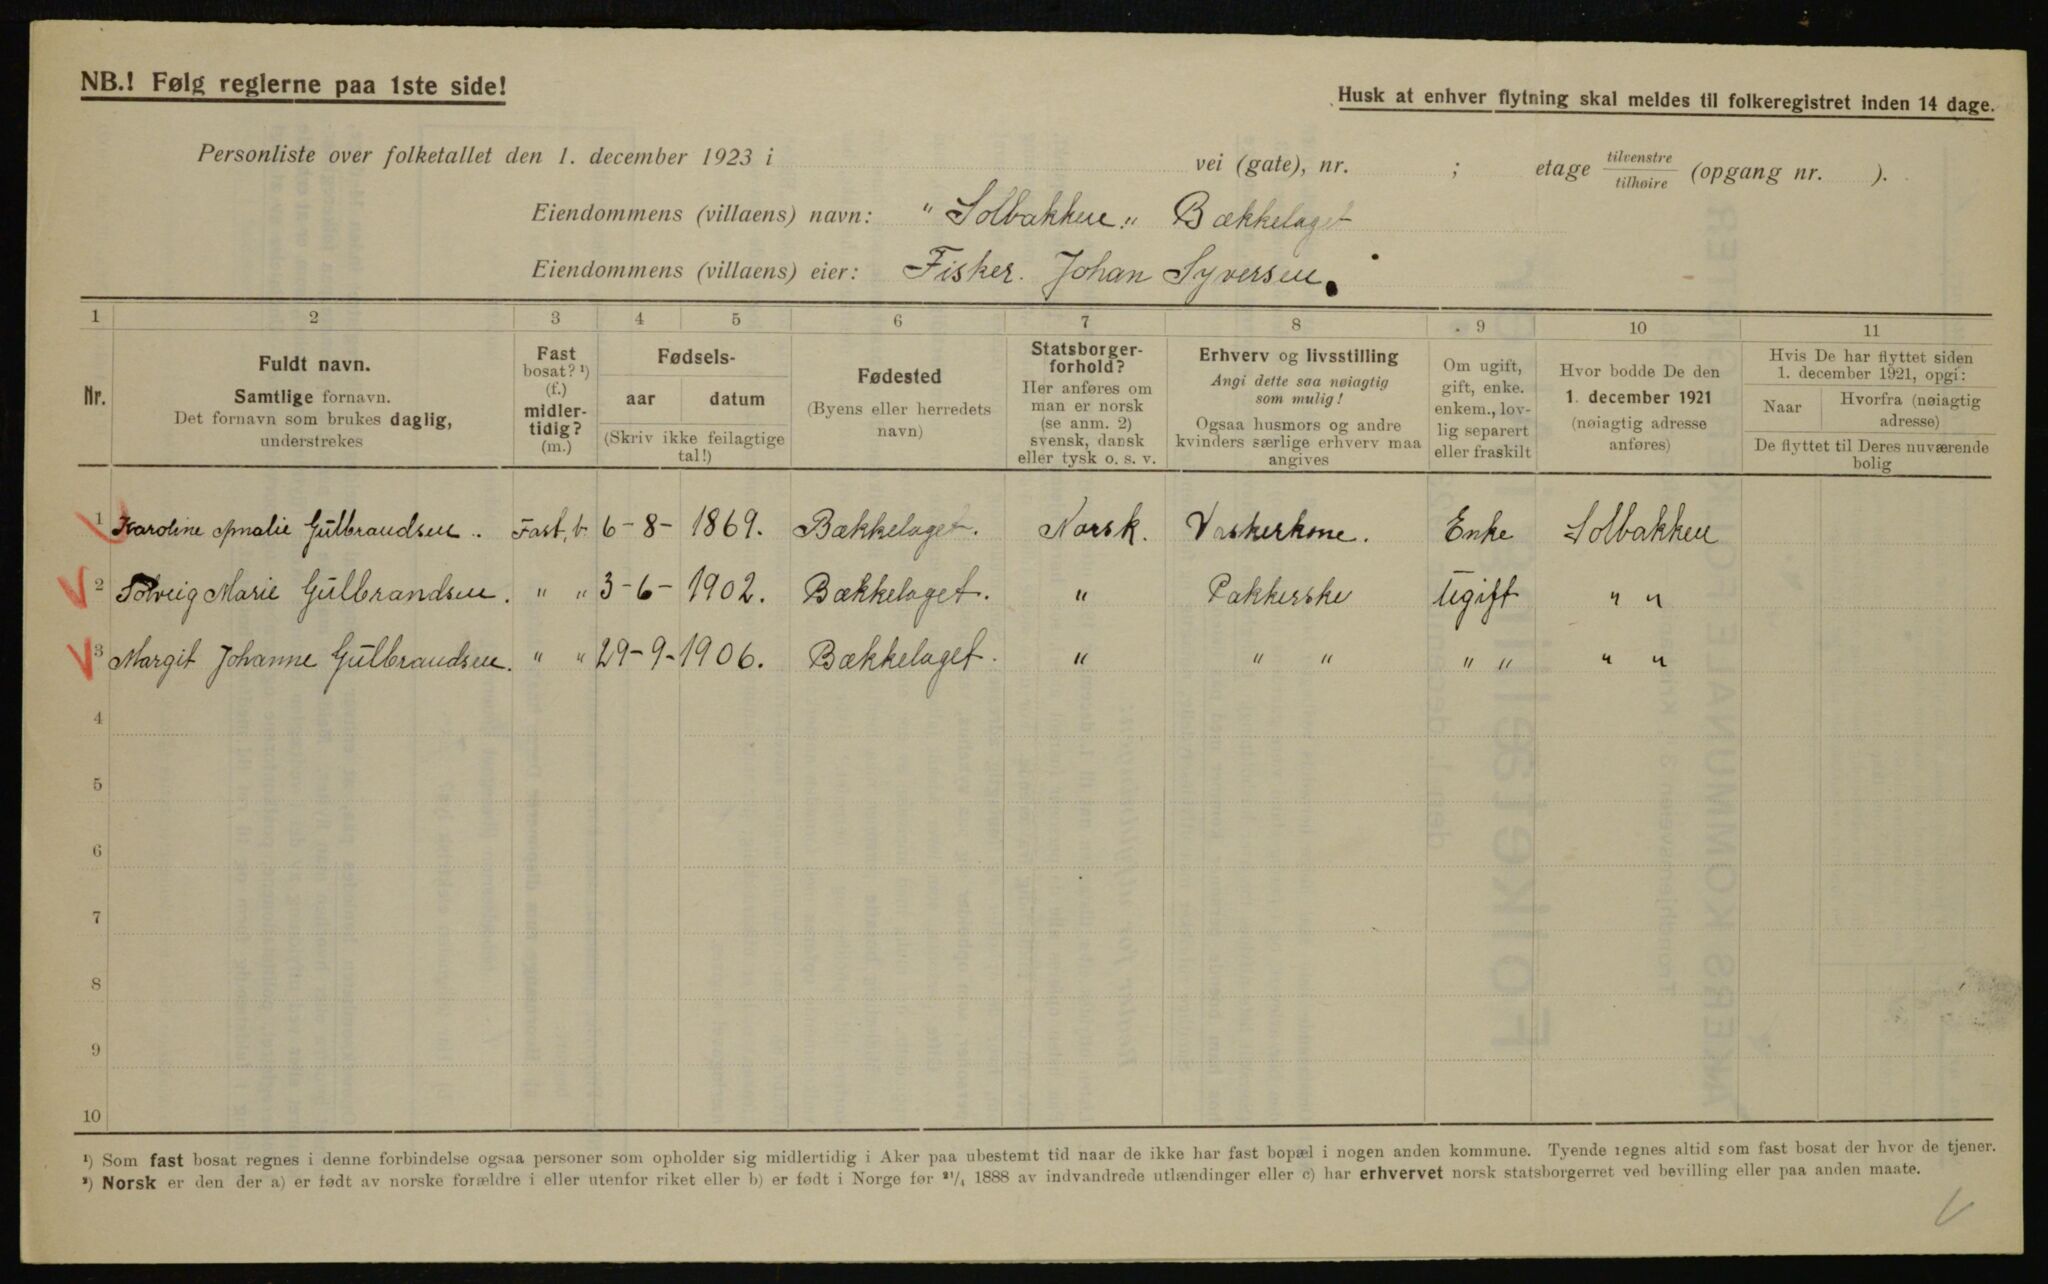 NB.! Følg reglerne paa 1ste side!
Husk at enhver flytning skal meldes til folkeregistret inden 14 dage.
Personliste over folketallet den 1. december 1923 i vei (gate), nr. ; etage tilvenstre / tilhøire (opgang nr. ).
Eiendommens (villaens) navn: "Solbakken" Bækkelaget
Eiendommens (villaens) eier: Fisker. Johan Syversen.
1 2 3 4 5 6 7 8 9 10 11
Nr.
Fuldt navn.
Samtlige fornavn.
Det fornavn som brukes daglig,
understrekes
Fast
bosat? ¹)
(f.)
midler-
tidig?
(m.)
Fødsels-
aar datum
(Skriv ikke feilagtige
tal!)
Fødested
(Byens eller herredets
navn)
Statsborger-
forhold?
Her anføres om
man er norsk
(se anm. 2)
svensk, dansk
eller tysk o. s. v.
Erhverv og livsstilling
Angi dette saa nøiagtig
som mulig!
Ogsaa husmors og andre
kvinders særlige erhverv maa
angives
Om ugift,
gift, enke.
enkem., lov-
lig separert
eller fraskilt
Hvor bodde De den
1. december 1921
(nøiagtig adresse
anføres)
Hvis De har flyttet siden
1. december 1921, opgi:
Naar Hvorfra (nøiagtig
adresse)
De flyttet til Deres nuværende
bolig
1 Karoline Amalie Gulbrandsen. Fast, b. 6-8- 1869. Bækkelaget. Norsk. Vaskerkone. Enke Solbakken
2 Solveig Marie Gulbrandsen. " " 3-6- 1902. Bækkelaget. " Pakkerske Ugift " "
3 Margit Johanne Gulbrandsen. " " 29-9- 1906. Bækkelaget. " " " " " " "
4
5
6
7
8
9
10
¹) Som fast bosat regnes i denne forbindelse ogsaa personer som opholder sig midlertidig i Aker paa ubestemt tid naar de ikke har fast bopæl i nogen anden kommune. Tyende regnes altid som fast bosat der hvor de tjener.
²) Norsk er den der a) er født av norske forældre i eller utenfor riket eller b) er født i Norge før ²¹/₄ 1888 av indvandrede utlændinger eller c) har erhvervet norsk statsborgerret ved bevilling eller paa anden maate.